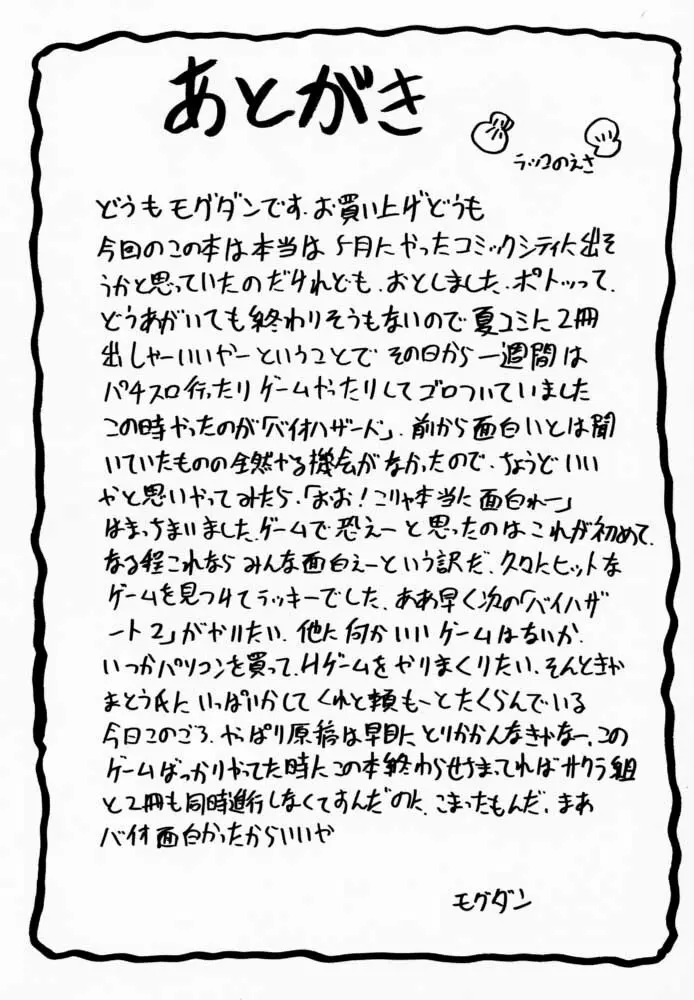 あとがき
ラッコのえさ
どうもモグダンです.お買い上げどうも
今回のこの本は本当は5月にやったコミックシティに出そ
うかと思っていたのだけれども、おとしました、ポトッって.
どうあがいても終わりそうもないので夏コミに2冊
出しゃーいいやーということでその日から一週間は
パチスロ行ったりゲームやったりしてゴロついていました
この時やったのが「バイオハザード」.前から面白いとは聞
いていたものの全然やる機会がなかったので、ちょうどいい
やと思いやってみたら、「おお!こりゃ本当に面白れー」
はまっちまいました.ゲームで恐えーと思ったのはこれが初めて.
なる程これならみんな面白えーという訳だ.久々にヒットな
ゲームを見つけてラッキーでした.ああ早く次の「バイハザ
ート2」がやりたい.他に何かいいゲームはないか.
いつかパソコンを買って、Hゲームをやりまくりたい.そんときゃ
まとう氏にいっぱいかしてくれと頼もーとたくらんでいる
今日このごろ.やっぱり原稿は早目にとりかかんなきゃなー、この
ゲームばっかりやってた時にこの本終わらせちまってればサクラ組
と2冊も同時進行しなくてすんだのに.こまったもんだ.まあ
バイオ面白かったからいいや
モグダン